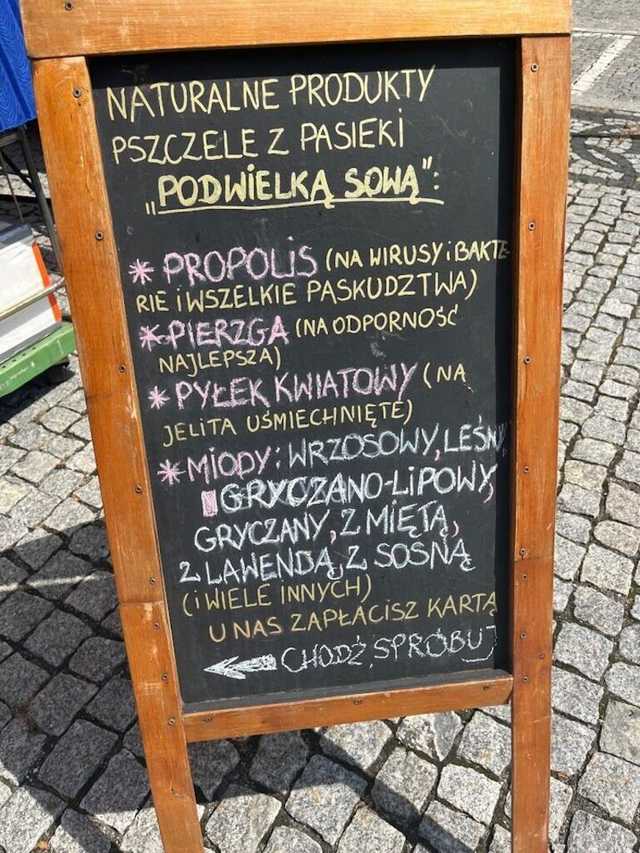 NATURALNE PRODUKTY
PSZCZELE Z PASIEKI
„PODWIELKĄ SOWĄ":
* PROPOLIS (NA WIRUSY i BAKTE-
RIE i WSZELKIE PASKUDZTWA)
* PIERZGA (NA ODPORNOŚĆ
NAJLEPSZA)
* PYŁEK KWIATOWY (NA
JELITA UŚMIECHNIĘTE)
* MIODY: WRZOSOWY, LEŚNY,
GRYCZANO-LIPOWY,
GRYCZANY, Z MIĘTĄ,
Z LAWENDĄ, Z SOSNĄ
(i WIELE INNYCH)
U NAS ZAPŁACISZ KARTĄ
CHODŹ, SPRÓBUJ